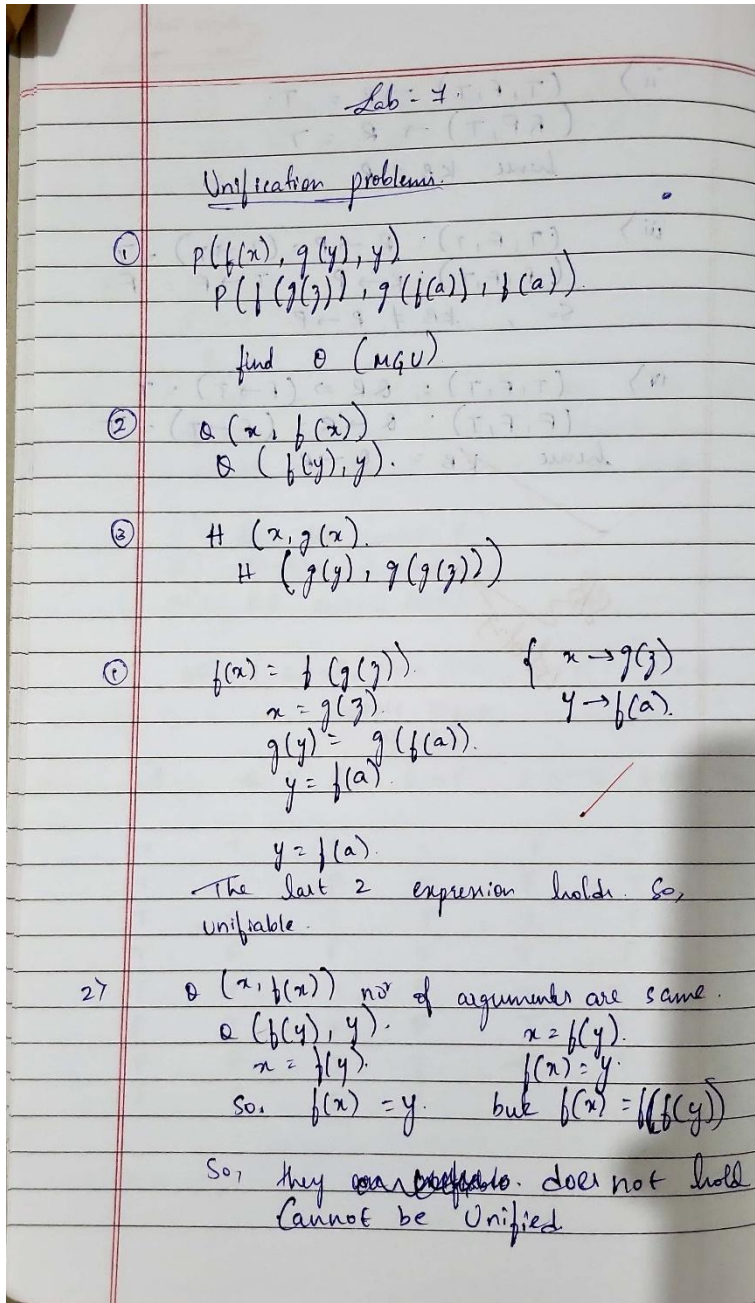 Lab - 7.
Unification problems.
① P(f(x), g(y), y)
P(f(g(z)), g(f(a)), f(a)).
find θ (MGU)
② Q (x, f(x))
Q (f(y), y).
③ H (x, g(x).
H (g(y), g(g(z)))
① f(x) = f(g(z)). { x → g(z)
x = g(z). y → f(a).
g(y) = g(f(a)).
y = f(a).
y = f(a).
The last 2 expression holds. So,
unifiable.
2) Q (x, f(x)) no. of arguments are same.
Q (f(y), y). x = f(y).
x = f(y). f(x) = y.
So, f(x) = y. but f(x) = f(f(y))
So, they does not hold
Cannot be Unified